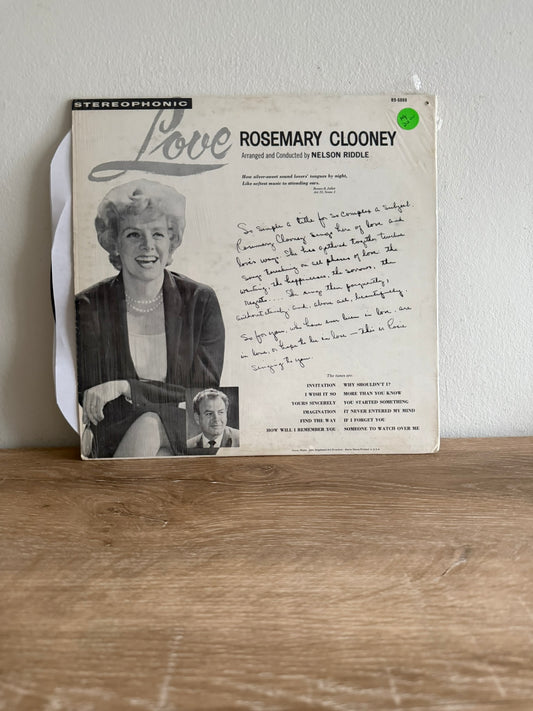 STEREOPHONIC
RS-6088
Love ROSEMARY CLOONEY
Arranged and Conducted by NELSON RIDDLE
How silver-sweet sound lovers' tongues by night,
Like softest music to attending ears.
Romeo & Juliet
Act II, Scene 2
So simple a title for so complex a subject
Rosemary Clooney sings here of love and
love's ways. She has gathered together twelve
songs touching on all phases of love the
waiting, the happinesses, the sorrows, the
regrets.... She sings them poignantly,
without density, and, above all, beautifully.
So for you, who have ever been in love, are
in love, or hope to be in love — This is Rosie
singing to you.
The tunes are:
INVITATION WHY SHOULDN'T I?
I WISH IT SO MORE THAN YOU KNOW
YOURS SINCERELY YOU STARTED SOMETHING
IMAGINATION IT NEVER ENTERED MY MIND
FIND THE WAY IF I FORGET YOU
HOW WILL I REMEMBER YOU SOMEONE TO WATCH OVER ME